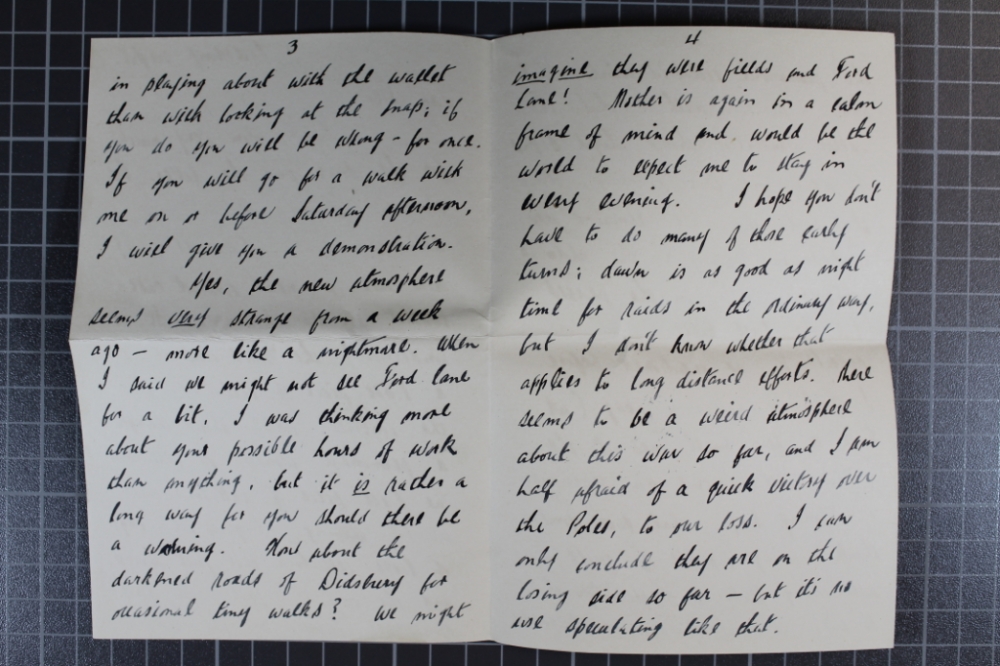 3
in playing about with the wallet
than with looking at the snap; if
you do you will be wrong - for once.
If you will go for a walk with
me on or before Saturday afternoon,
I will give you a demonstration.
Yes, the new atmosphere
seems very strange from a week
ago – more like a nightmare. When
I said we might not see Ford Lane
for a bit, I was thinking more
about your possible hours of work
than anything, but it is rather a
long way for you should there be
a warning. How about the
darkened roads of Didsbury for
occasional tiny walks? We might
4
imagine they were fields and Ford
Lane! Mother is again in a calm
frame of mind and would be the
world to expect me to stay in
every evening. I hope you don't
have to do many of those early
turns; dawn is as good as night
time for raids in the ordinary way,
but I don't know whether that
applies to long distance efforts. There
seems to be a weird atmosphere
about this war so far, and I am
half afraid of a quick victory over
the Poles, to our loss. I can
only conclude they are on the
losing side so far – but it's no
use speculating like that.